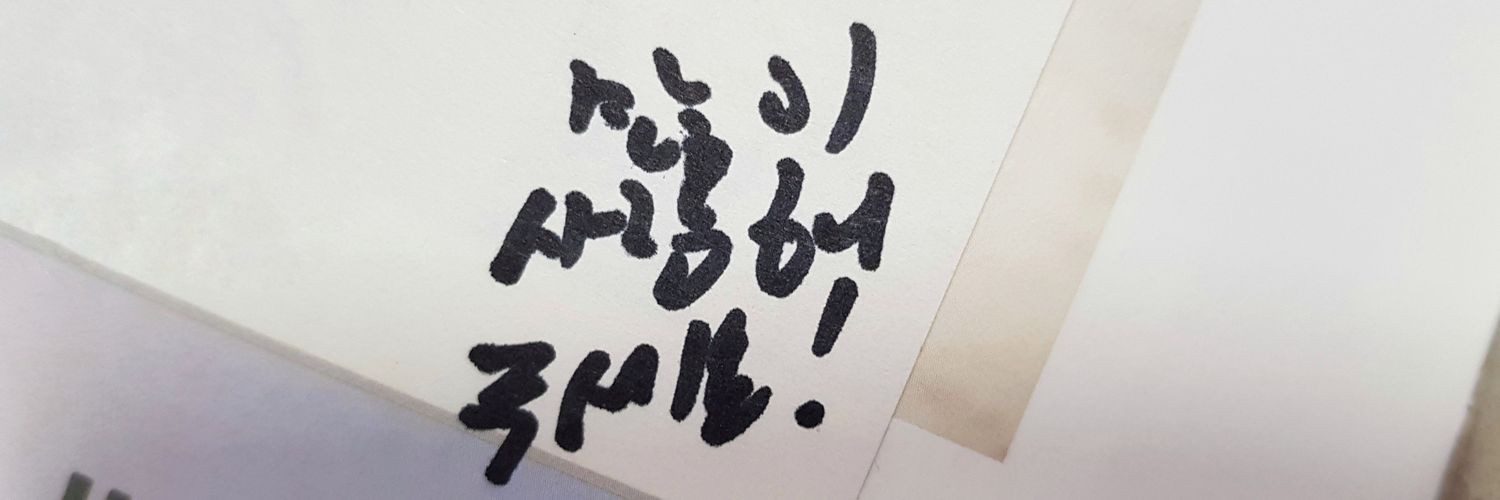 많이
사랑해
주세요!